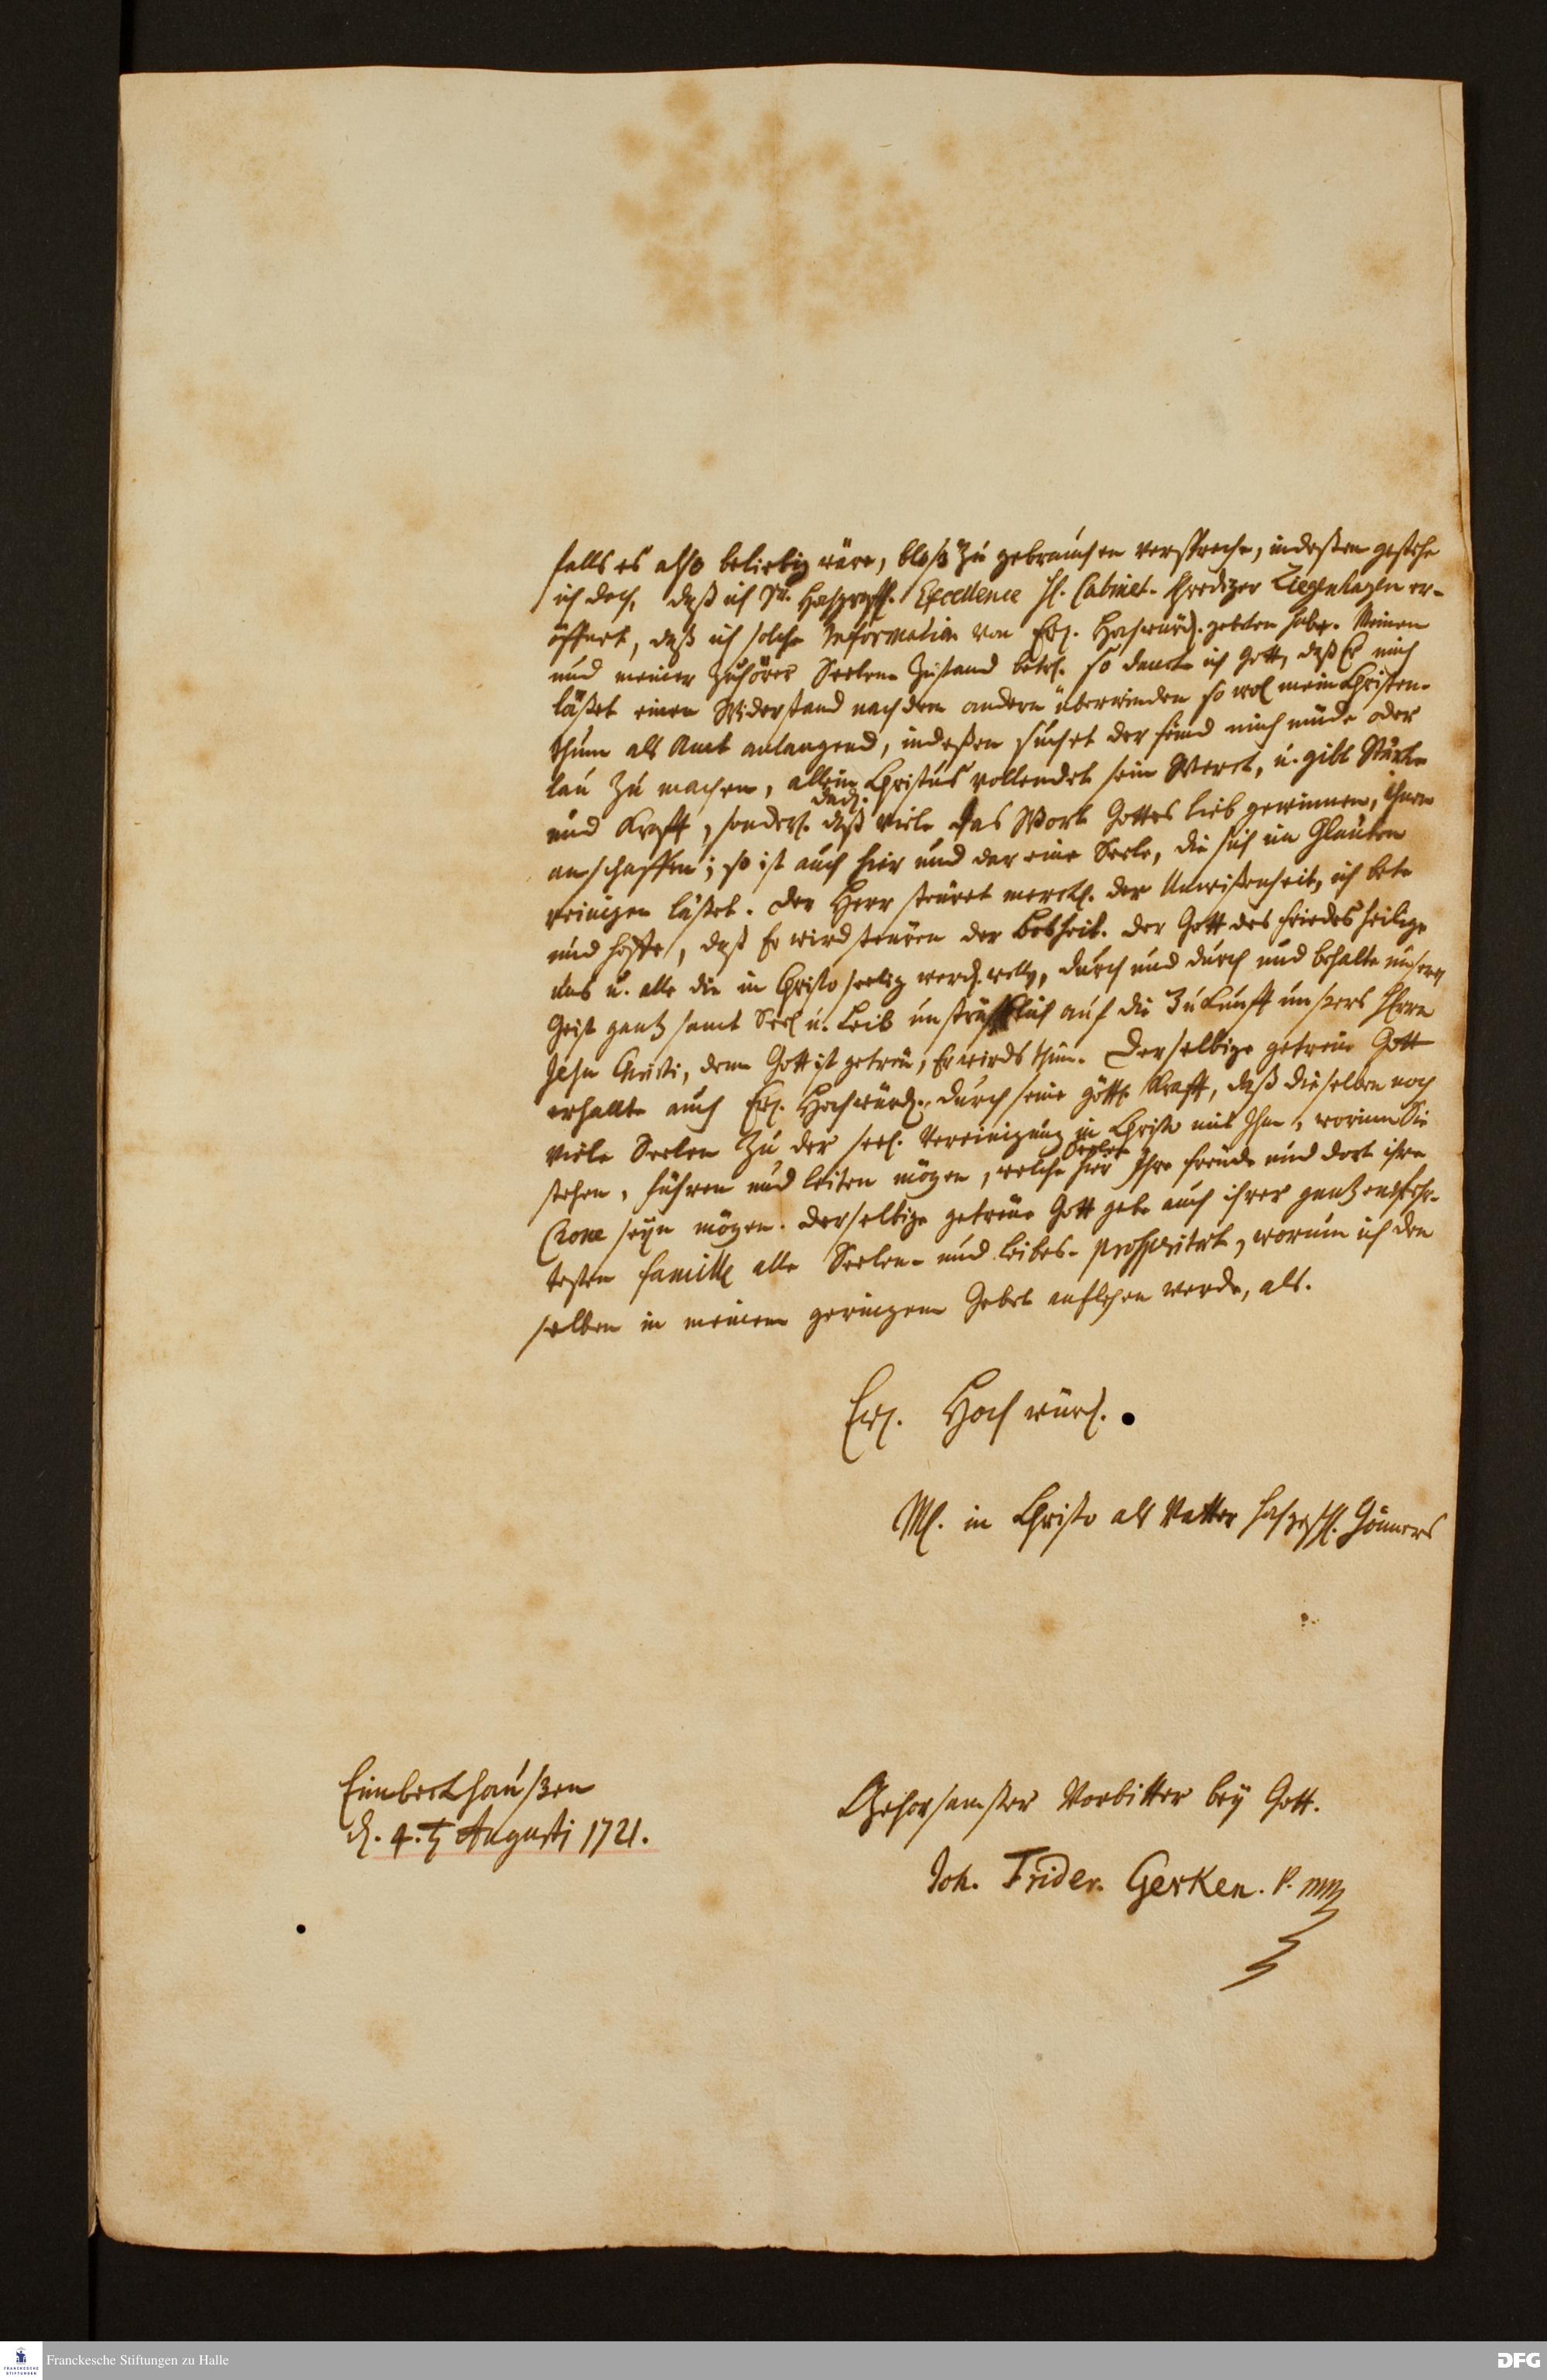 falls es also beliebig wäre, bloß zu gebrauchen verspreche, indeßen gestehe
ich doch, daß ich Sr. Excellence H. Cabinet-Prediger Ziegenhagen er-
öffnet, daß ich solche Information von Ew. Hochwürd. gebeten habe. Meinen
und meiner Zuhörer Seelen-Zustand betr. so dancke ich Gott, daß Er mich
läßet einen Widerstand nach dem andern überwinden so wol mein Christen-
thum als Amt anlangend, indeßen suchet der feind mich müde oder
lau zu machen, allein Christus vollendet sein Werck, u. gibt Stärke
und Krafft, sonderl. daß viele das Wort Gottes lieb gewinnen, ihnen
anschaffen; so ist auch hier und dar eine Seele, die sich im Glauben
reinigen läßet. Der Herr steuret merckl. der Unwißenheit, ich bete
und hoffe, daß Er wird steuren der Bosheit. Der Gott des friedes heilige
uns u. alle die in Christo seelig werd. wollen, durch und durch und behalte unsern
Geist gantz samt Seel u. Leib unsträfflich auf die Zukunfft unsers HErrn
Jesu Christi, denn Gott ist getreu, Er wirds thun. Derselbige getreue Gott
erhalte auch Ew. Hochwürd. durch seine göttl. Krafft, daß dieselben noch
viele Seelen zu der seel. Vereinigung in Christo mit Ihm, worinn Sie
stehen, führen und leiten mögen, welche Seelen hier Ihre freude und dort ihre
Crone seyn mögen. Derselbige getreue Gott gebe auch ihrer gantzen
testen famille alle Seelen- und Leibes-Prosperität, worum ich den
selben in meinem geringen Gebet anflehen werde, als.
Ew. Hochwürd.
M. in Christo als Vatter Gönners
Eimbeckhaußen
d. 4. t Augusti 1721.
Gehorsamster Vorbitter bey Gott.
Joh. Frider. Gerken. P.
Franckesche Stiftungen zu Halle
FRANCKESCHE
STIFTUNGEN
DFG